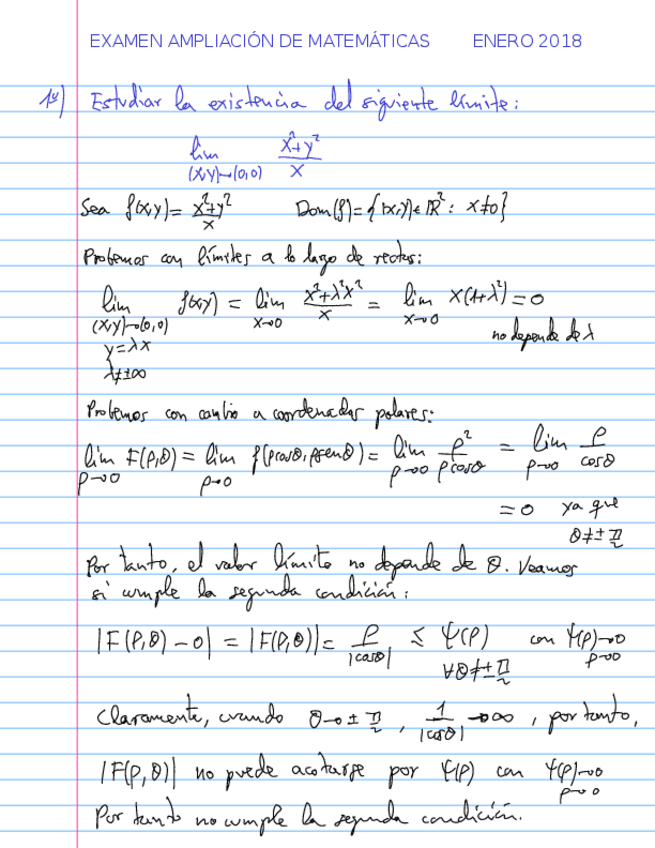 EXAMEN AMPLIACIÓN DE MATEMÁTICAS ENERO 2018
1º) Estudiar la existencia del siguiente límite:
lim_{(x,y)→(0,0)} (x²+y²)/x
Sea f(x,y) = (x²+y²)/x Dom(f) = {(x,y)∈ℝ² : x≠0}
Probemos con límites a lo largo de rectas:
lim_{(x,y)→(0,0), y=λx, λ≠±∞} f(x,y) = lim_{x→0} (x²+λ²x²)/x = lim_{x→0} x(1+λ²) = 0
no depende de λ
Probemos con cambio a coordenadas polares:
lim_{ρ→0} F(ρ,θ) = lim_{ρ→0} f(ρcosθ, ρsenθ) = lim_{ρ→0} ρ²/(ρcosθ) = lim_{ρ→0} ρ/cosθ
= 0 ya que
θ≠±π/2
Por tanto, el valor límite no depende de θ. Veamos
si cumple la segunda condición:
|F(ρ,θ) − 0| = |F(ρ,θ)| = ρ/|cosθ| ≤ Ψ(ρ) con Ψ(ρ)→0, ρ→0
∀θ≠±π/2
Claramente, cuando θ→±π/2, 1/|cosθ| →∞, por tanto,
|F(ρ,θ)| no puede acotarse por Ψ(ρ) con Ψ(ρ)→0, ρ→0
Por tanto no cumple la segunda condición.